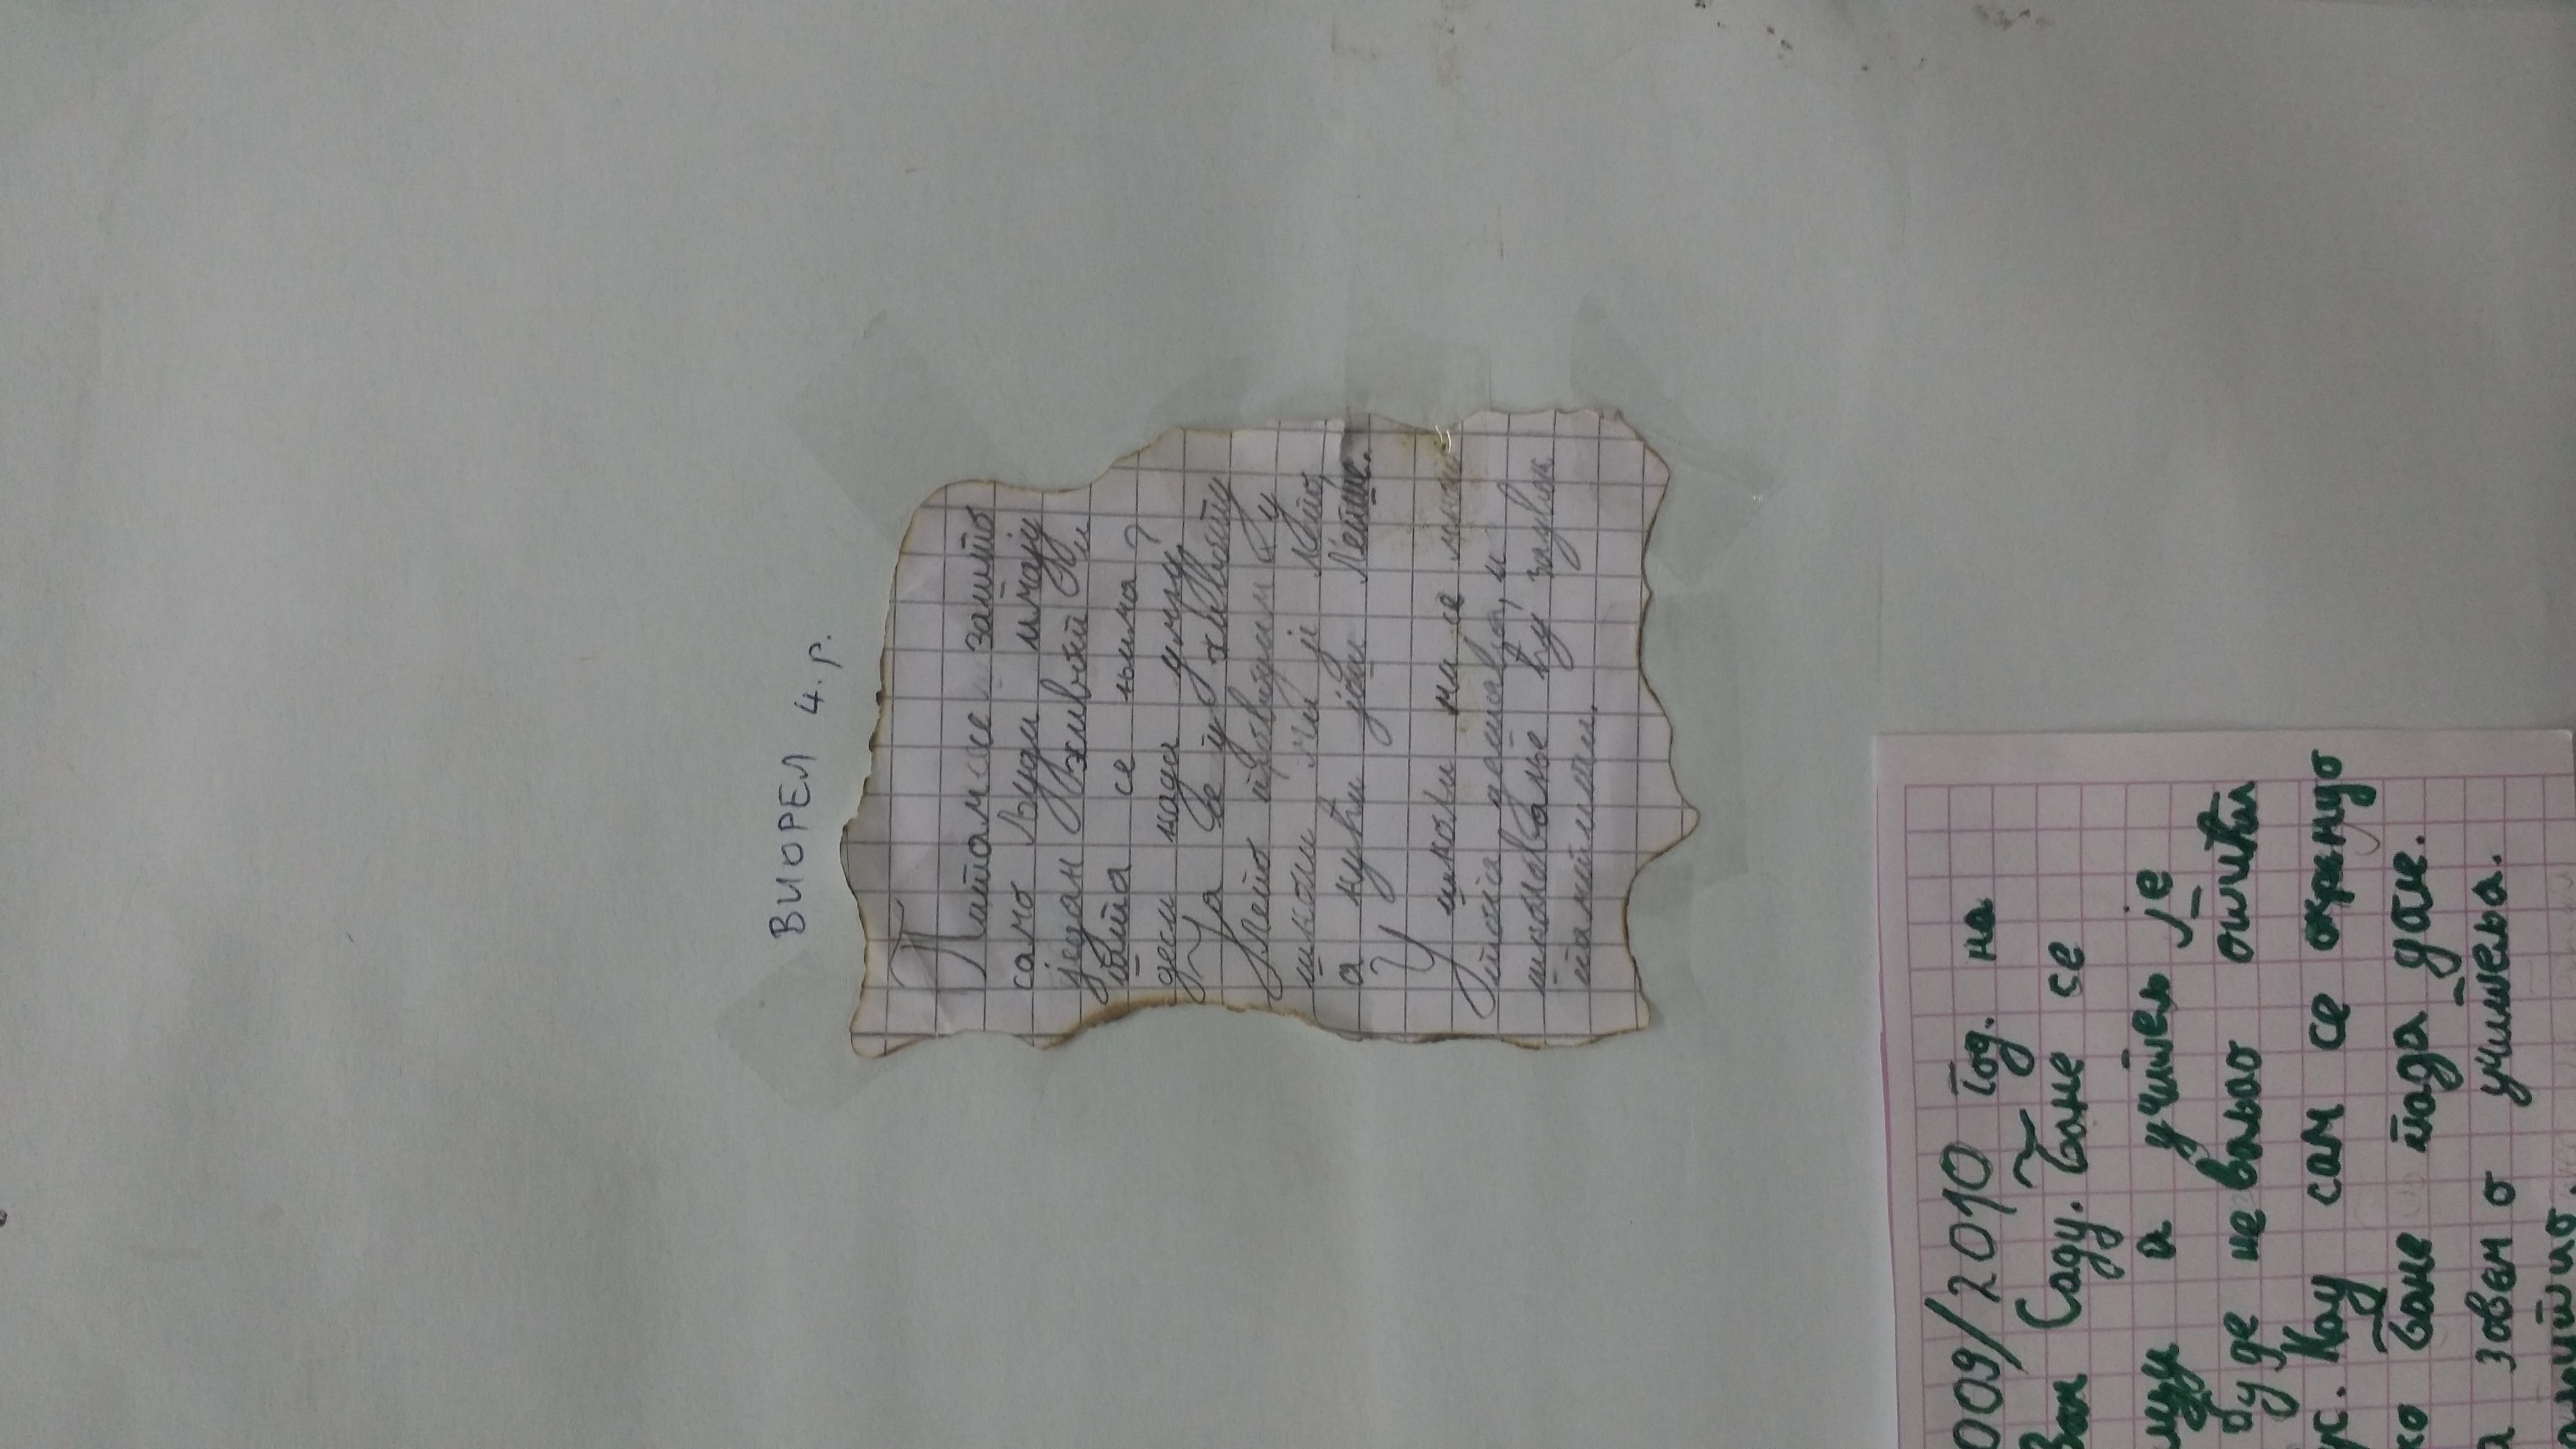 ВИОРЕЛ 4. р.
Питам се зашто
само људи имају
један живот и
шта се њима
деси када умру?
Ја се у животу
лепо проводим у
школи ми је лепо,
а кући још лепше.
У школи ми се много
тога дешава, и
школовање ћу заувек
памтити.
009/2010 год. на
Саду. Бане се
а учитељ је
буде неваљао отићи
Кад сам се окренуо
Бане пада доле.
зовемо учитеља.